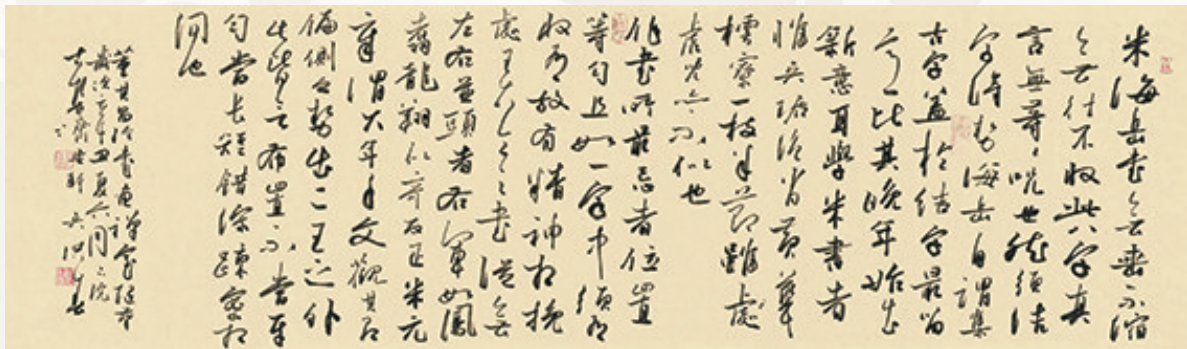 米海岳書無垂不缩
無往不收此八字真
言無等〻咒也然須结
字得势海岳自謂集
古字蓋於结字最留
意比其晚年始出
新意耳學米書者
惟吴琚絶肖黄華
樗寮一枝半節雖
虎兒亦不似也
作書所最忌者位置
等匀且如一字中須有
收有放有精神相挽
處王大令之書從無
左右並頭者右軍如鳳
翥龍翔似奇反正米元
章謂大年千文觀其有
偏側之勢出二王之外
此皆言布置不當平
匀當長短錯综疎密相
間也
董其昌論書畫禪室随筆
歲次辛丑夏六月